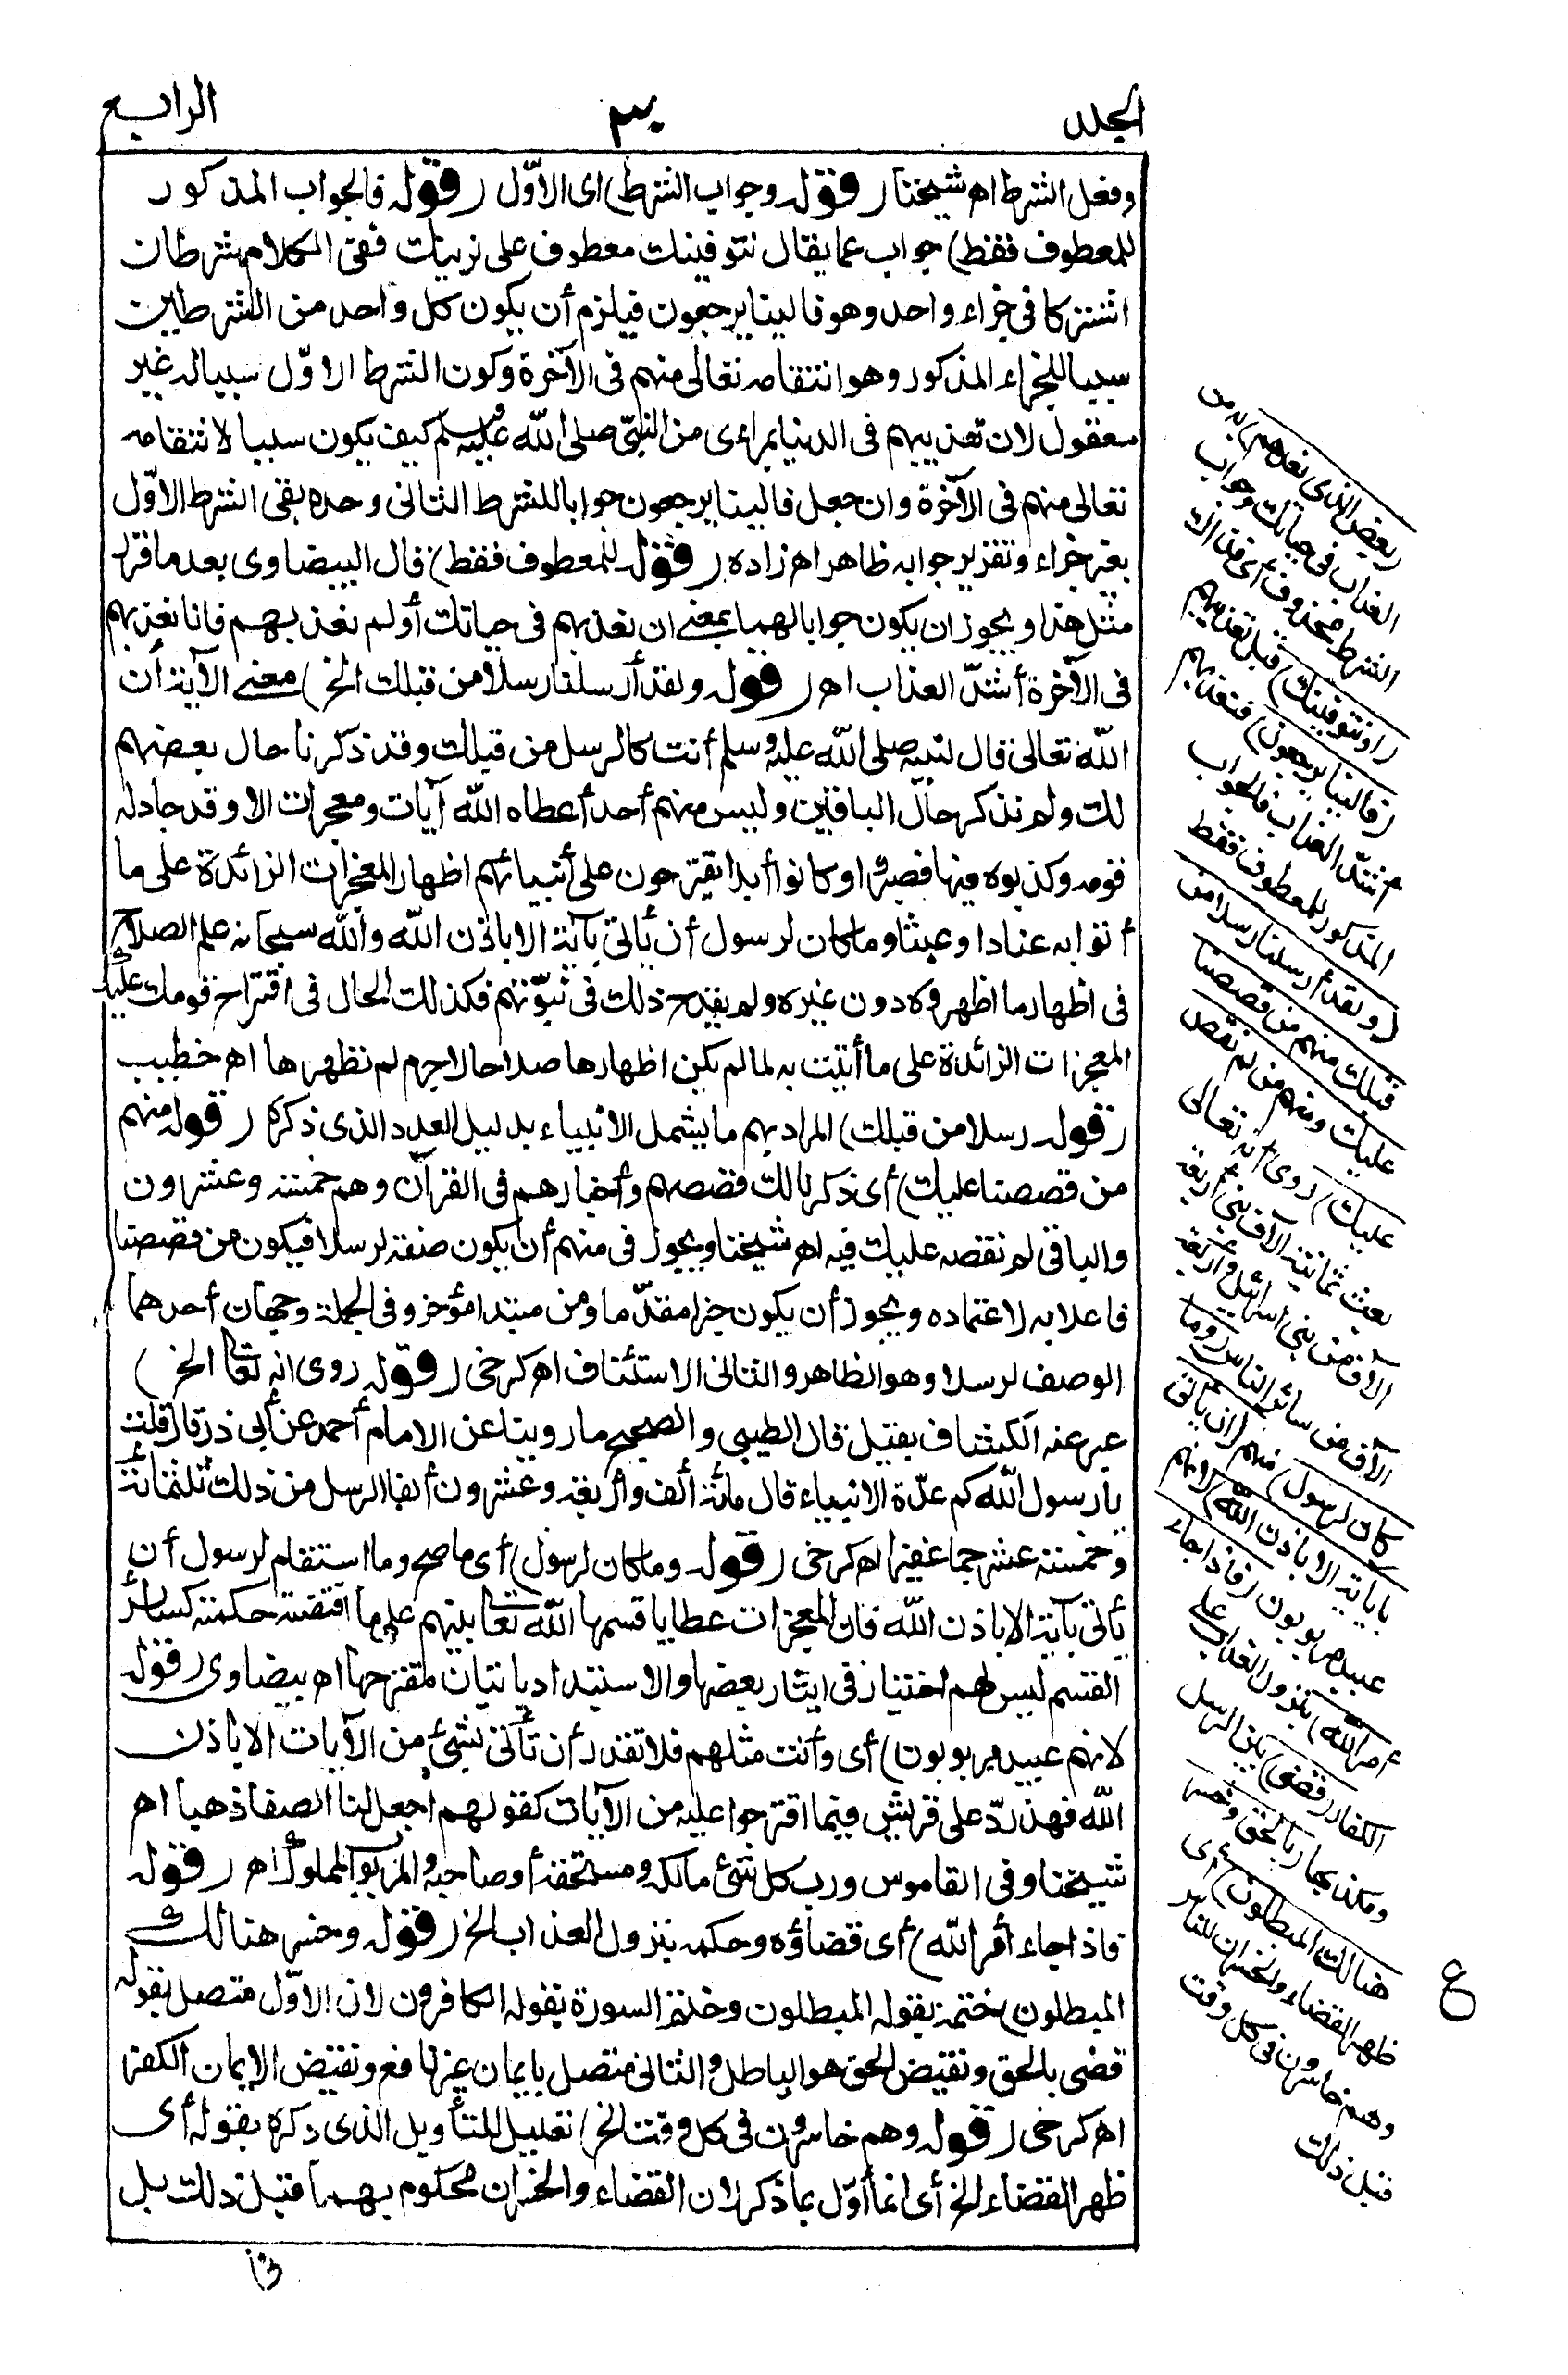 الجلد
٣٠
الرابع
وفعل الشرط اه شيخنا (قوله وجواب الشرط) اى الاوّل (قوله فالجواب المذكور
للمعطوف فقط) جواب عما يقال نتوفينك معطوف على نرينك ففى الكلام شرطان
اشتركا فى جزاء واحد وهو فالينا يرجعون فيلزم أن يكون كل واحد من الشرطين
سببا للجزاء المذكور وهو انتقامه تعالى منهم فى الآخرة وكون الشرط الاوّل سببا له غير
معقول لان تعذيبهم فى الدنيا بمراءى من النبىّ صلى الله عليه وسلم كيف يكون سببا لانتقامه
تعالى منهم فى الآخرة وان جعل فالينا يرجعون جوابا للشرط الثانى وحده بقى الشرط الاوّل
بغير جزاء وتقرير جوابه ظاهر اه زاده (قوله للمعطوف فقط) قال البيضاوى بعد ما قرر
مثل هذا ويجوز ان يكون جوابا لهما بمعنى ان نعذبهم فى حياتك أو لم نعذبهم فانا نعذبهم
فى الآخرة أشدّ العذاب اه (قوله ولقد أرسلنا رسلا من قبلك الخ) معنى الآية أن
الله تعالى قال لنبيه صلى الله عليه وسلم أنت كالرسل من قبلك وقد ذكرنا حال بعضهم
لك ولم نذكر حال الباقين وليس منهم أحد أعطاه الله آيات ومعجزات الا وقد جادله
قومه وكذبوه فيها فصبروا وكانوا أبدا يقترحون على أنبيائهم اظهار المعجزات الزائدة على ما
أتوا به عنادا وعبثا وما كان لرسول أن يأتى بآية الا باذن الله والله سبحانه علم الصلاح
فى اظهار ما اظهروه دون غيره ولم يقدح ذلك فى نبوّتهم فكذلك الحال فى اقتراح قومك عليك
المعجزات الزائدة على ما أتيت به لما لم يكن اظهارها صلاحا لا جرم لم نظهرها اه خطيب
(قوله رسلا من قبلك) المراد بهم ما يشمل الانبياء بدليل العدد الذى ذكره (قوله منهم
من قصصنا عليك) أى ذكرنا لك قصصهم وأخبارهم فى القرآن وهم خمسة وعشرون
والباقى لم نقصه عليك فيه اه شيخنا ويجوز فى منهم أن يكون صفة لرسلا فيكون من قصصنا
فاعلا به لاعتماده ويجوز أن يكون خبرا مقدّما ومن مبتدا مؤخر وفى الجملة وجهان أحدهما
الوصف لرسلا وهو الظاهر والثانى الاستئناف اه كرخى (قوله روى انه تعالى الخ)
عبر عنه الكشاف بقيل قال الطيبى والصحيح ما روينا عن الامام أحمد عن أبى ذر قال قلت
يا رسول الله كم عدّة الانبياء قال مائة ألف وأربعة وعشرون ألفا الرسل من ذلك ثلثمائة
وخمسة عشر جما غفيرا اه كرخى (قوله وما كان لرسول) أى ما صح وما استقام لرسول أن
يأتى بآية الا باذن الله فان المعجزات عطايا قسمها الله تعالى بينهم على ما اقتضته حكمته كسائر
القسم ليس لهم اختيار فى ايثار بعضها والاستبداد باتيان المقترح بها اه بيضاوى (قوله
لانهم عبيد مربوبون) أى وأنت مثلهم فلا تقدر أن تأتى بشئ من الآيات الا باذن
الله فهذا ردّ على قريش فيما اقترحوا عليه من الآيات كقولهم اجعل لنا الصفا ذهبا اه
شيخنا وفى القاموس ورب كل شئ مالكه ومستحقه أو صاحبه والمربوب المملوك اه (قوله
فاذا جاء أمر الله) أى قضاؤه وحكمه بنزول العذاب الخ (قوله وخسر هنالك
المبطلون) ختمه بقوله المبطلون وختم السورة بقوله الكافرون لان الاوّل متصل بقوله
قضى بالحق ونقيض الحق هو الباطل والثانى متصل بايمان غير نافع ونقيض الايمان الكفر
اه كرخى (قوله وهم خاسرون فى كل وقت الخ) تعليل للتأويل الذى ذكره بقوله أى
ظهر القضاء الخ أى انما أوّل بما ذكر لان القضاء والخسران محكوم بهما قبل ذلك بل
(بعض الذى نعدهم) به من
العذاب فى حياتك وجواب
الشرط محذوف أى فذاك
(أو نتوفينك) قبل تعذيبهم
(فالينا يرجعون) فنعذبهم
أشدّ العذاب فالجواب
المذكور للمعطوف فقط
(ولقد أرسلنا رسلا من
قبلك منهم من قصصنا
عليك ومنهم من لم نقصص
عليك) روى أنه تعالى
بعث ثمانية آلاف نبى أربعة
آلاف من بنى اسرائيل وأربعة
آلاف من سائر الناس (وما
كان لرسول) منهم (ان يأتى
بآية الا باذن الله) لانهم
عبيد مربوبون (فاذا جاء
أمر الله) بنزول العذاب على
الكفار (قضى) بين الرسل
ومكذبيها (بالحق وخسر
هنالك المبطلون) أى
ظهر القضاء والخسران للناس
وهم خاسرون فى كل وقت
قبل ذلك
ع